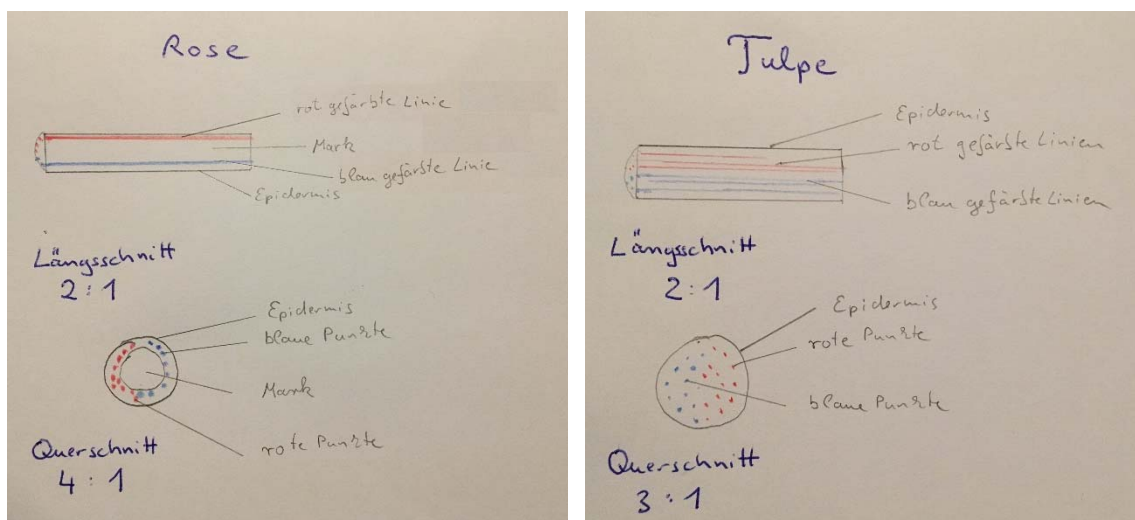 Rose
rot gefärbte Linie
Mark
blau gefärbte Linie
Epidermis
Längsschnitt
2:1
Epidermis
blaue Punkte
Mark
rote Punkte
Querschnitt
4:1
Tulpe
Epidermis
rot gefärbte Linien
blau gefärbte Linien
Längsschnitt
2:1
Epidermis
rote Punkte
blaue Punkte
Querschnitt
3:1